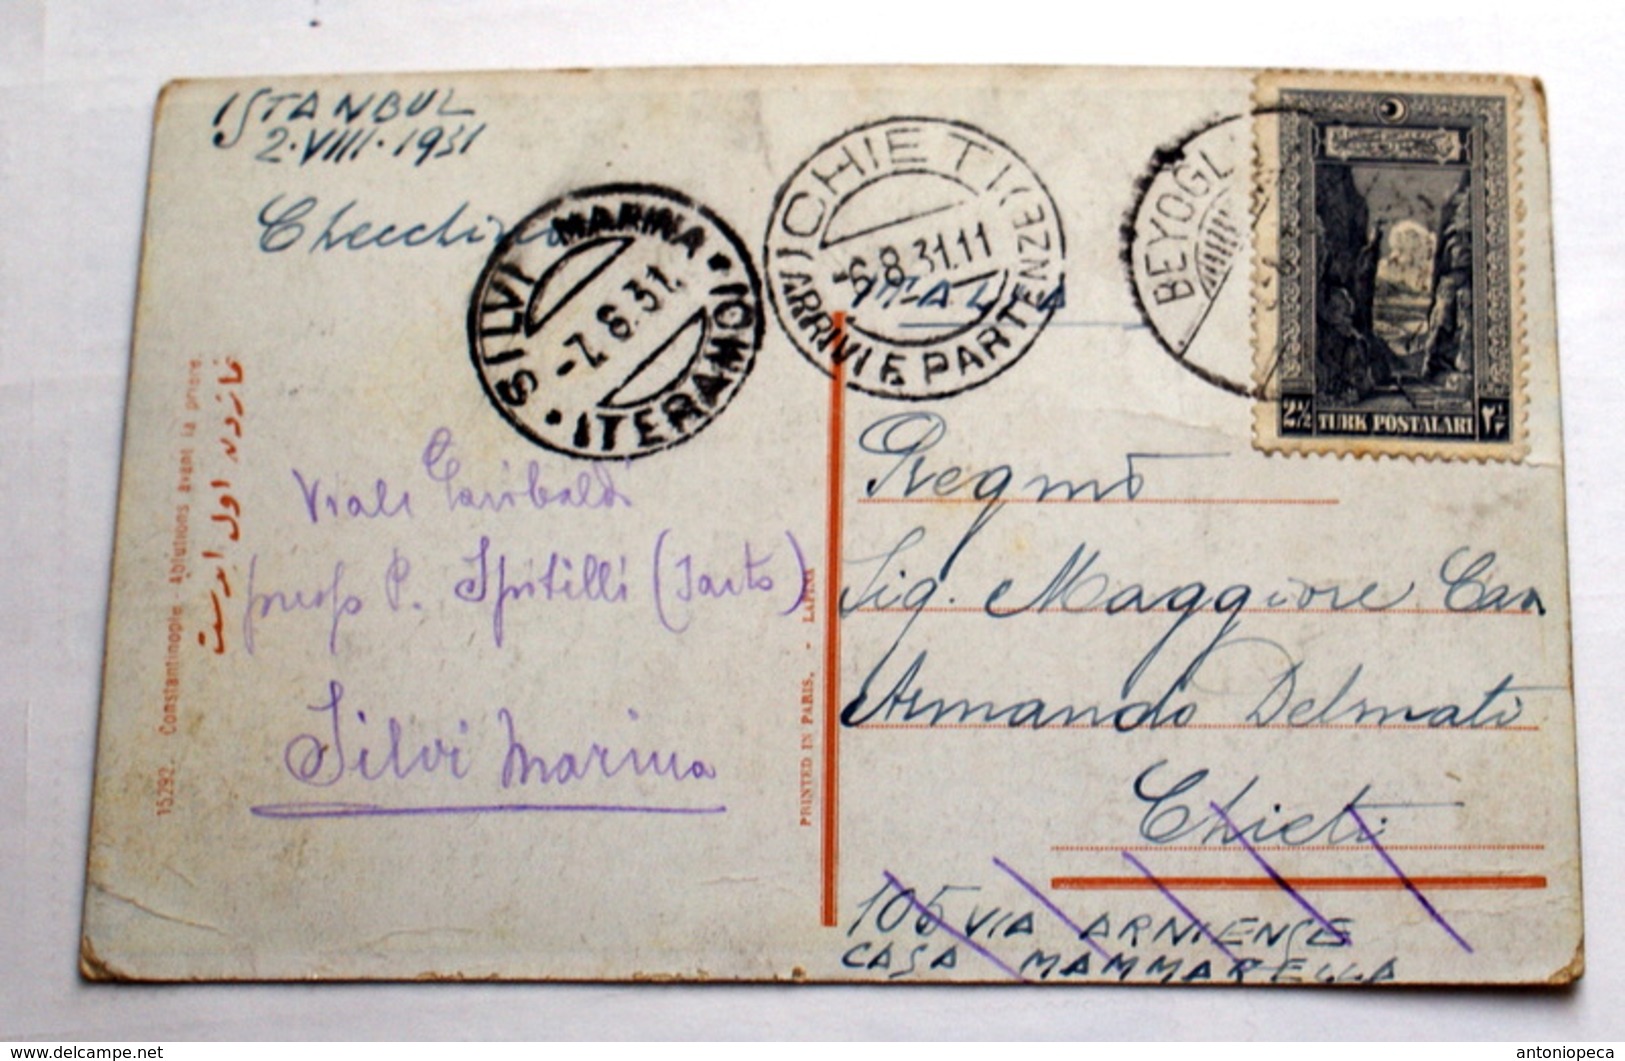 ISTANBUL
2·VIII·1931
Checchino
SILVI MARINA
-7.8.31.
(TERAMO)
CHIETI
6.8.31.11
(ARRIVI E PARTENZE)
ITALIA
BEYOGL
2½ TURK POSTALARI ٢ ١/٢
Pregmo
Sig. Maggiore Cav
Armando Delmati
Chieti
105 VIA ARNIENSE
CASA MAMMARELLA
Viale Garibaldi
presso P. Spitilli (sarto)
Silvi Marina
15292. Constantinople - Ablutions avant la prière.
نمازدن اول ابدست
PRINTED IN PARIS. - LAFINA
delcampe.net
antoniopeca